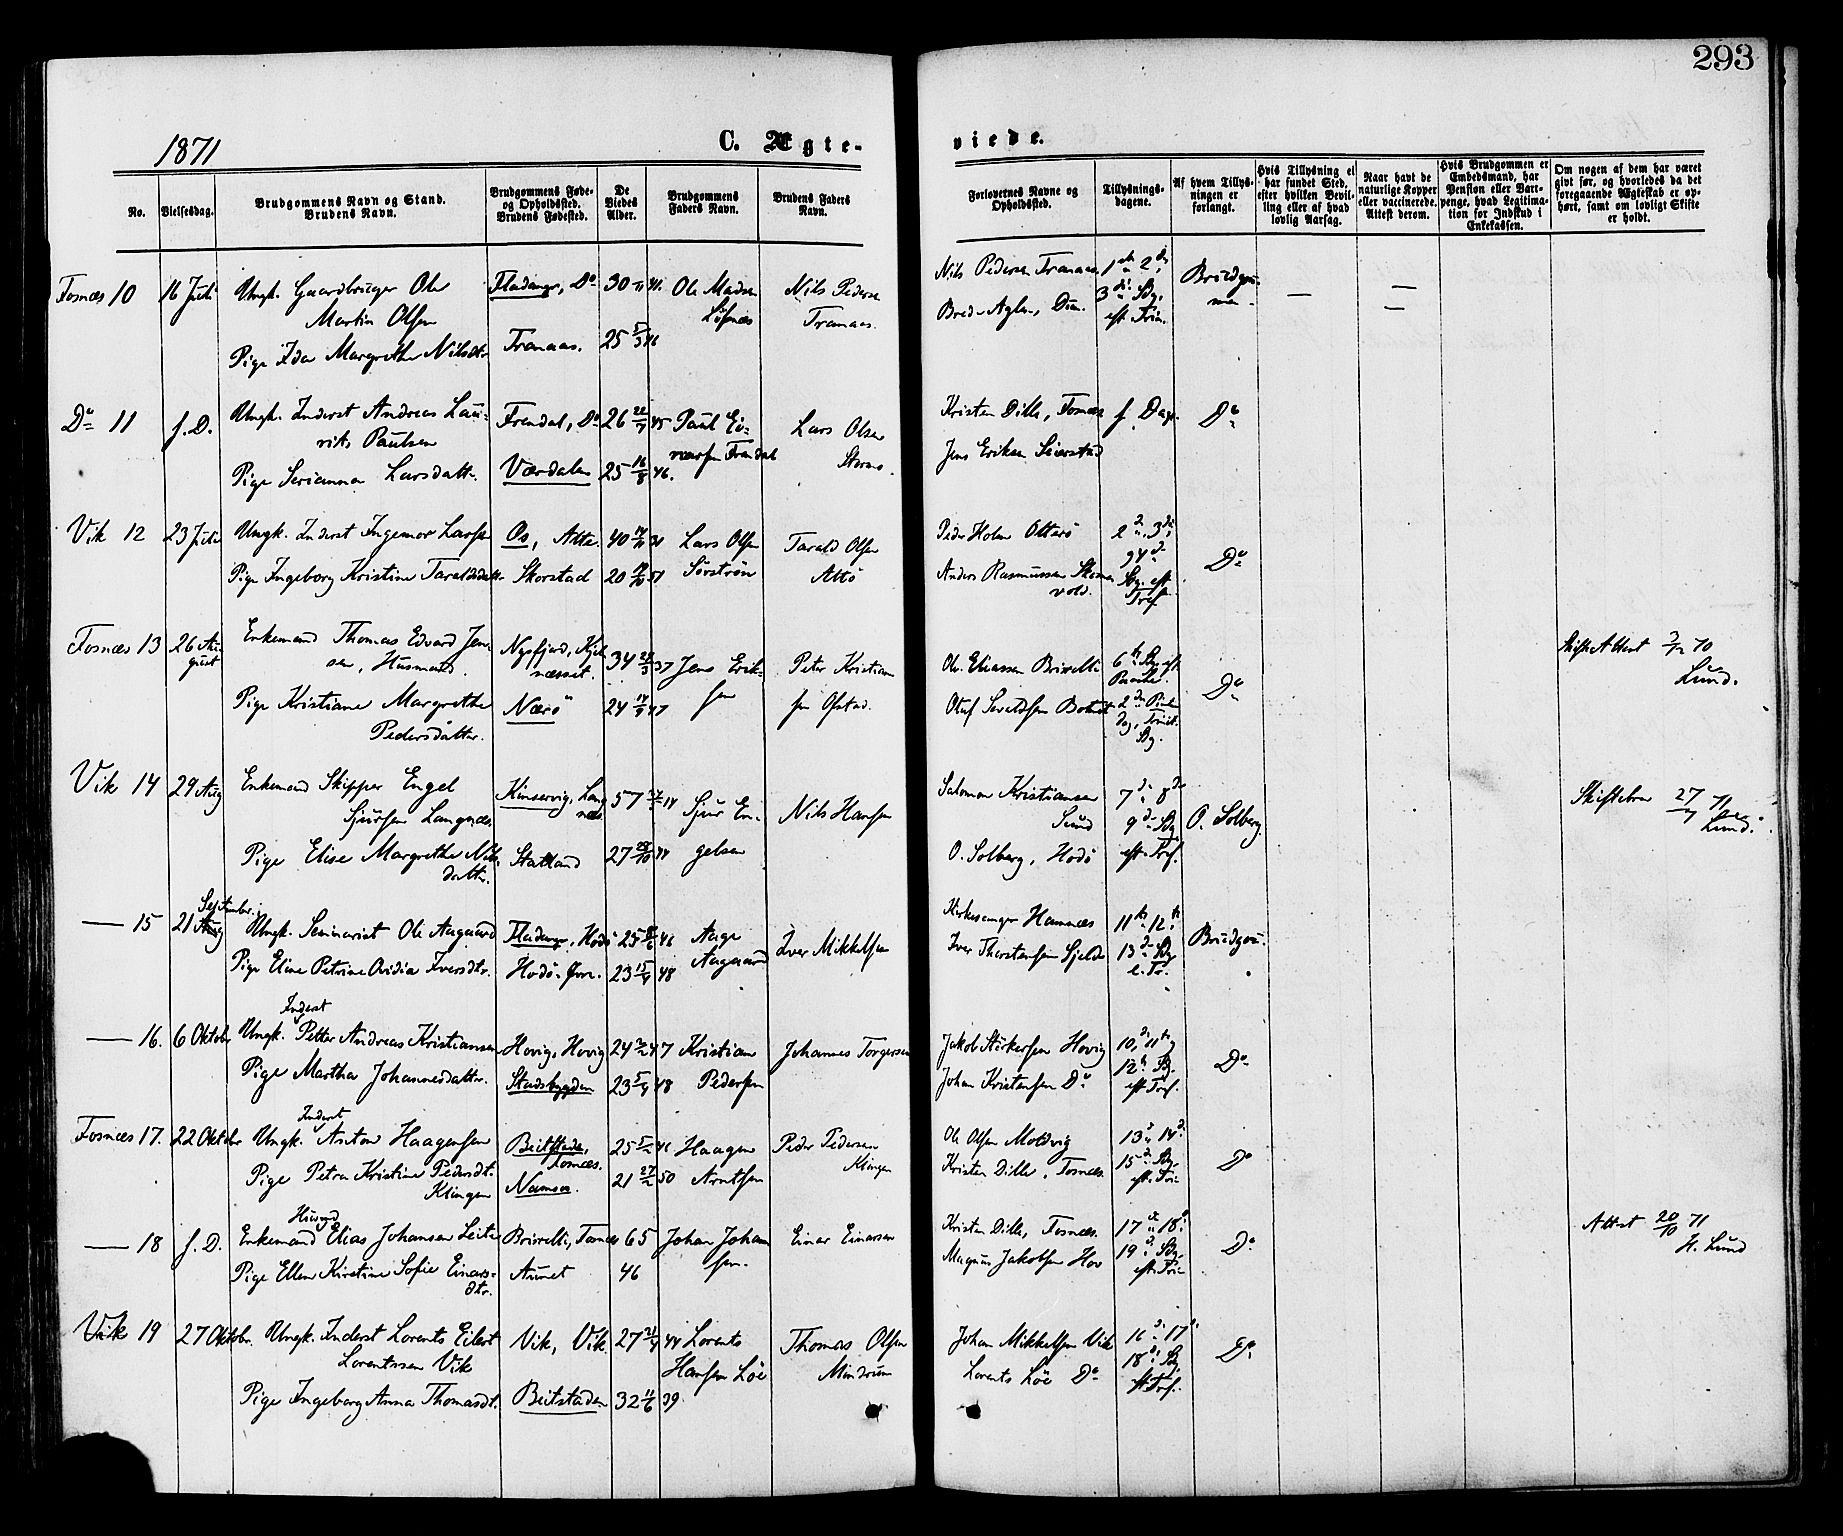 293
1871
C. Ægte-
viede.
No.
Vielsesdag.
Brudgommens Navn og Stand.
Brudens Navn.
Brudgommens Føde-
og Opholdssted.
Brudens Fødested.
De
Viedes
Alder.
Brudgommens
Faders Navn.
Brudens Faders
Navn.
Forlovernes Navne og
Opholdssted.
Tillysnings-
dagene.
Af hvem Tillys-
ningen er
forlangt.
Hvis Tillysning ei
har fundet Sted,
efter hvilken Bevil-
ling eller af hvad
lovlig Aarsag.
Naar havt de
naturlige Kopper
eller vaccinerede.
Attest derom.
Hvis Brudgommen er
Embedsmand, har
Pension eller Vart-
penge, hvad Legitima-
tion for Indskud i
Enkekassen.
Om nogen af dem har været
givt før, og hvorledes da det
foregaaende Ægteskab er op-
hørt, samt om lovligt Skifte
er holdt.
Fosnæs 10 16 Juli Ungk. Gaardbruger Ole
Martin Olsen
Pige Ida Margrethe Nilsdtr
Fladanger, Do
Tranaas.
30 41.
25 5/3 46
Ole Madsen
Nils Pedersen
Tranaas.
Nils Pedersen Tranaas
1ste 2den
3die Sdg.
eft. Trin.
Brudgom-
men.
Do 11 f. D. Ungk. Inderst Andreas Lau-
rits Paulsen
Pige Serianna Larsdattr.
Frendal, Do
Værdalen
26 22/7 45
25 16/8 46.
Paul Ei-
varsen Frendal
Lars Olsen
Kristen Dille, Fosnæs
Jens Eriksen Seierstad
f. Dage.
Do
Vik 12 23 Juli Ungk. Inderst Ingemor Larsen
Pige Ingeborg Kristine Taraldsdattr
Os, Altø.
Skorstad
40 31
20 51
Lars Olsen
Sørstrøn
Tarald Olsen
Altø
Peder Holm Otterø
Anders Rasmussen Skomo
vold.
2den 3die
og 4de
Sdg. eft.
Tref.
Do
Fosnæs 13 26 Au-
gust
Enkemand Thomas Edvard Jen-
sen, Husmand.
Pige Kristiane Margrethe
Pedersdatter.
næsset.
Nærø
34 37
24 14/9 47
Jens Erik-
sen
Peter Kristian
sen Ofstad.
Ole Eliassen Brivelli
6te Sdg eft.
Paaske.
2den Pintse
dag, Trinit.
Sdg.
Do
Skifte Attest 70
Lund.
Vik 14 29 Aug Enkemand Skipper Engel
Sjursen Langnæs.
Pige Elise Margrethe Nils-
dattr.
Kinservig, Lang
næs
Statland
57 14
27 28/10 44
Sjur En-
gelsen
Nils Hansen
Salomon Kristiansen
Sund
O. Solberg, Hodø
7de 8de
9de Sdg
eft. Tref.
O. Solberg
Skiftebrev 27/7 71
Lund.
— 15 21 Aug September. Ungk. Seminarist Ole Aagaard
Pige Eline Petrine Ovidia Iversdtr.
Fladanger, Hodø
Hodø
25 46
23 15/9 48
Aage
Aagaard
Iver Mikkelsen
Kirkesanger Hamnæs
Iver Thorstensen
11te 12te
13de Sdg
e. Tr.
Brudgom.
— 16. 6 Oktobr Ungk. Inderst Petter Andreas Kristiansen
Pige Martha Johannesdattr.
Hovig, Hovig
Stadsbygden
24 47
23 5/9 48
Kristian
Pedersen
Johannes Torgersen
Jakob Stirkersen Hovig
Johan Kristensen Do
10de 11te
12te Sdg.
eft. Tref.
Do
Fosnæs 17. 22 Oktobr Ungk. Inderst Anton Haagensen
Pige Petra Kristine Pedersdt.
Klingen
Beitstaden,
Fosnæs.
Namsos.
25 46
21 27/2 50
Haagen
Arntsen
Peder Pedersen
Klingen
Ole Olsen Moldvig
Kristen Dille, Fosnæs.
13de 14de
15de Sdg.
eft. Tri
Do
— 18 f. D. Enkemand Husmd Elias Johansen Leite
Pige Ellen Kirstine Sofie Einars-
dtr.
Brivelli, Fosnæs
Aunet
65
46
Johan Johan
sen.
Einar Einarsen
Kristen Dille, Fosnæs.
Magnus Jakobsen Hov
17de 18de
19de Sdg.
eft. Tri
Do
Attest 20/10 71
H. Lund
Vik 19 27 Oktobr. Ungk. Inderst Lorents Eilert
Lorentssen Vik
Pige Ingeborg Anna Thomasdt.
Vik, Vik.
Beitstaden
27 21/4 44
32 11/6 39.
Lorents
Hansen Løe
Thomas Olsen
Mindrum
Johan Mikkelsen Vik
Lorents Løe Do
16de 17de
18de Sdg
eft. Tref.
Do